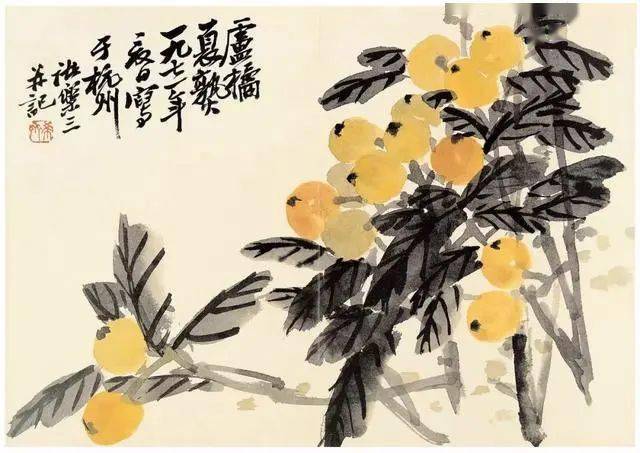 盧橘
夏熟
一九七二年
日寫
于杭州
諸樂三
并記